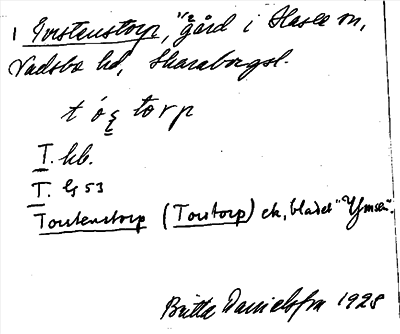 1 Torstenstorp, "1/2 gård i Hasle sn,
Vadsbo hd, Skaraborgsl.
t ó ę torp
T. hb.
T. G 53
Torstenstorp (Torstorp) ek, bladet "Ymsen".
Britta Danielsson 1928